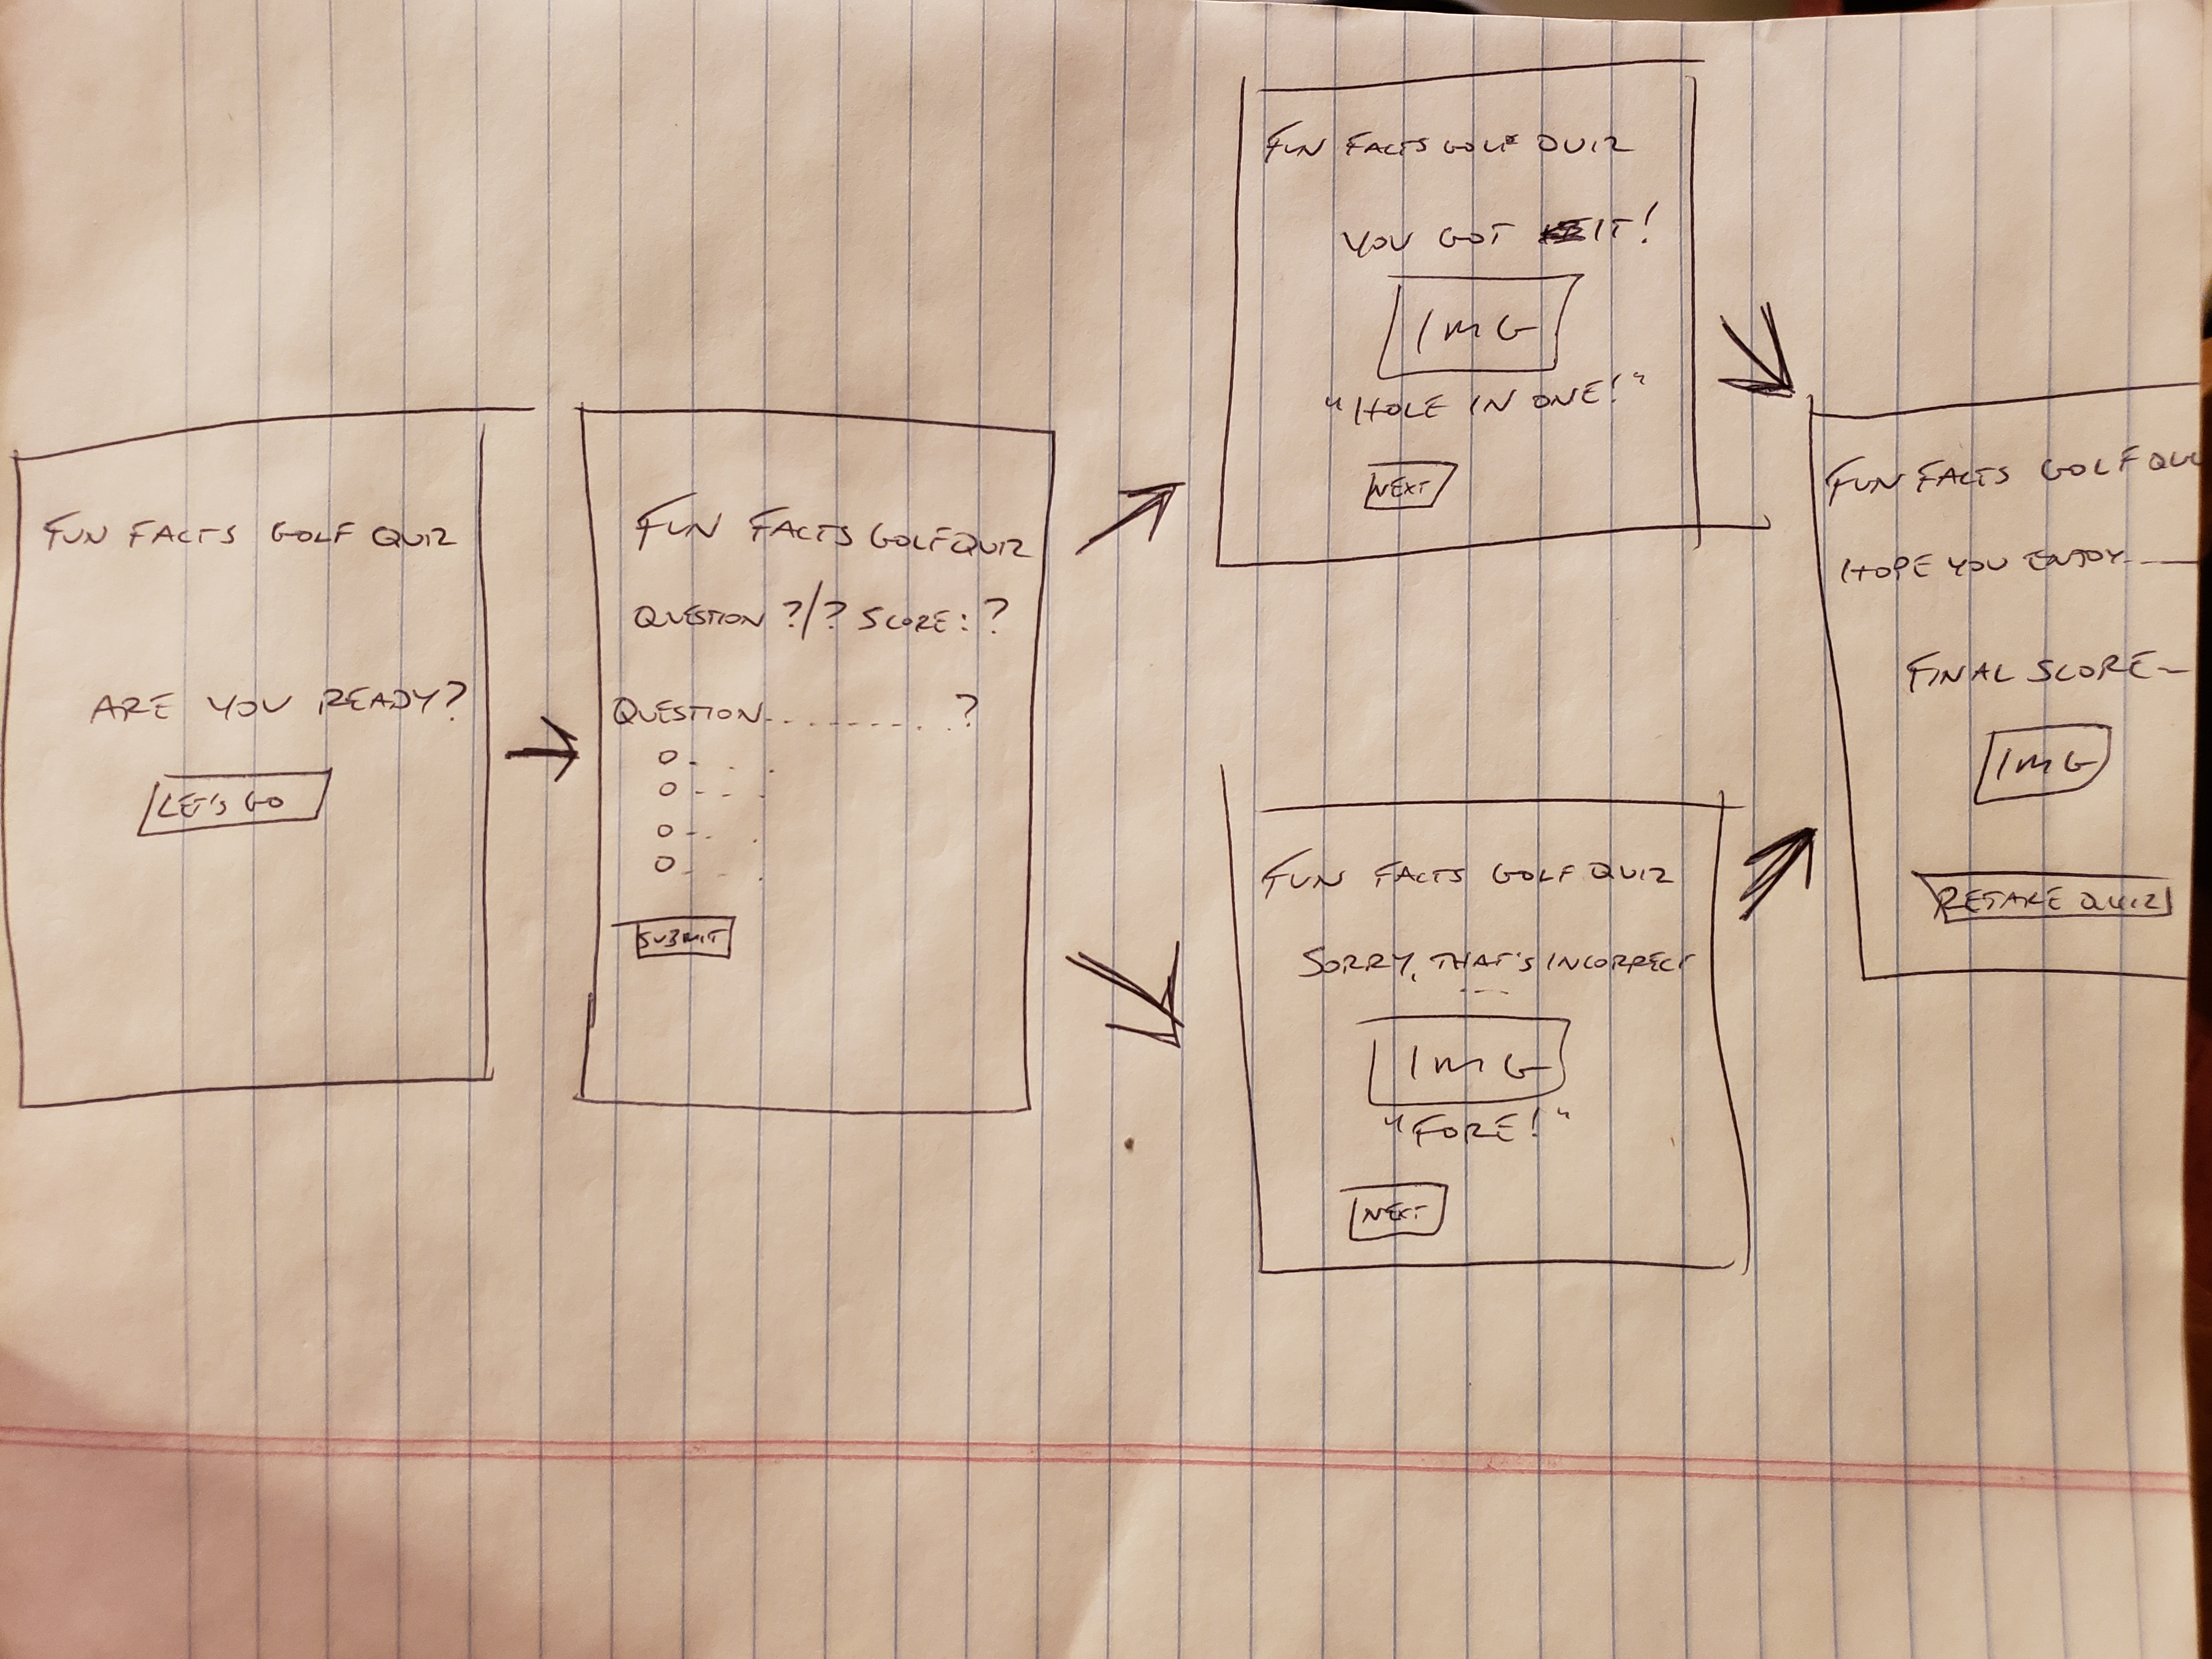 FUN FACTS GOLF QUIZ
ARE YOU READY?
LET'S GO
FUN FACTS GOLF QUIZ
QUESTION ?/? SCORE: ?
QUESTION.........?
SUBMIT
FUN FACTS GOLF QUIZ
YOU GOT IT!
IMG
"HOLE IN ONE!"
NEXT
FUN FACTS GOLF QUIZ
SORRY, THAT'S INCORRECT
IMG
"FORE!"
NEXT
FUN FACTS GOLF QUI
HOPE YOU ENJOY
FINAL SCORE-
IMG
RETAKE QUIZ